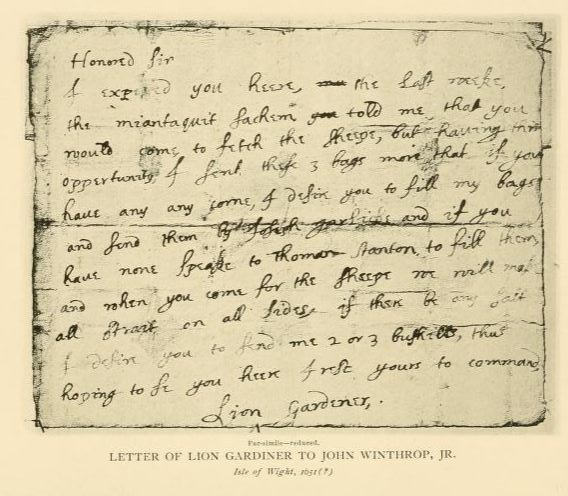 Honored Sir
I expected you heere, the Last weeke,
the miantaquit sachem told me, that you
would come to fetch the sheepe, but having this
oppertunity I sent these 3 bags more that if you
have any any corne, I desire you to fill my bags
and send them by Joseph garlicke and if you
have none speake to Thomas Stanton, to fill them
and when you come for the sheepe we will
all on all sides. if there be any salt
I desire you to send me 2 or 3 bushells, thus
hoping to se you heere I rest yours to command
Lion Gardener,.
Fac-simile—reduced.
LETTER OF LION GARDINER TO JOHN WINTHROP, JR.
Isle of Wight, 1651(?)